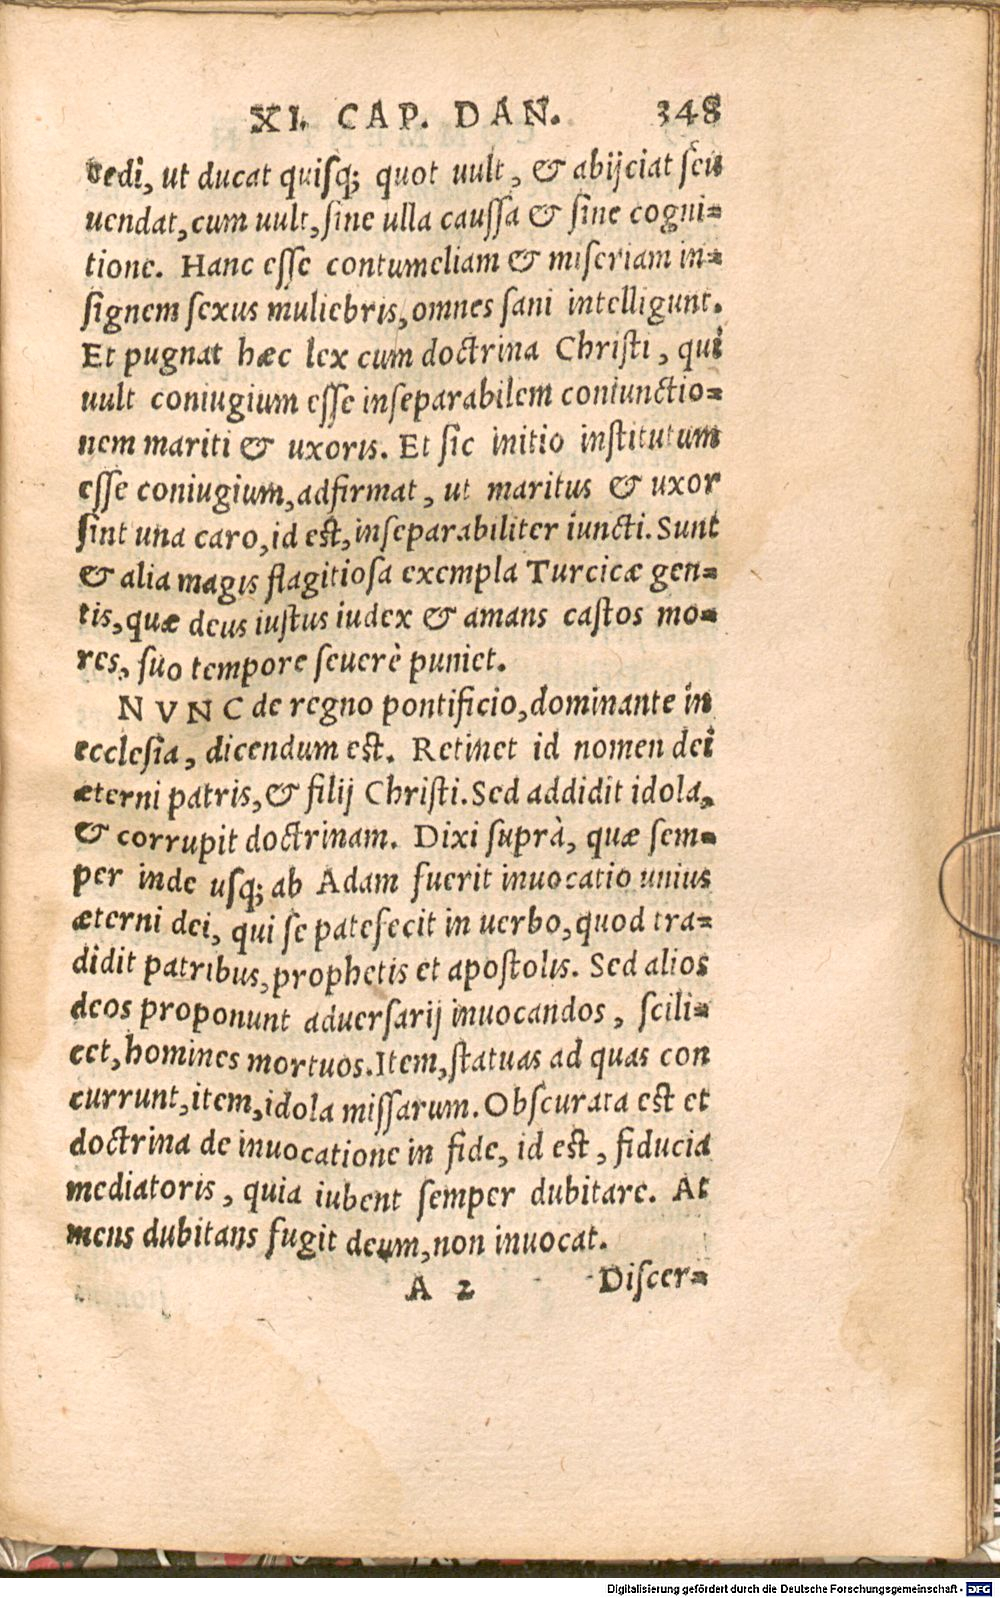 XI. CAP. DAN. 348
vedi, ut ducat quisq; quot uult, & abijciat seu
uendat, cum uult, sine ulla caussa & sine cogni-
tione. Hanc esse contumeliam & miseriam in-
signem sexus muliebris, omnes sani intelligunt.
Et pugnat hæc lex cum doctrina Christi, qui
uult coniugium esse inseparabilem coniunctio-
nem mariti & uxoris. Et sic initio institutum
esse coniugium, adfirmat, ut maritus & uxor
sint una caro, id est, inseparabiliter iuncti. Sunt
& alia magis flagitiosa exempla Turcicæ gen-
tis, quæ deus iustus iudex & amans castos mo-
res, suo tempore seuerè puniet.
NVNC de regno pontificio, dominante in
ecclesia, dicendum est. Retinet id nomen dei
æterni patris, & filij Christi. Sed addidit idola,
& corrupit doctrinam. Dixi suprà, quæ sem-
per inde usq; ab Adam fuerit inuocatio unius
æterni dei, qui se patefecit in uerbo, quod tra-
didit patribus, prophetis et apostolis. Sed alios
deos proponunt aduersarij inuocandos, scili-
cet, homines mortuos. Item, statuas ad quas con
currunt, item, idola missarum. Obscurata est et
doctrina de inuocatione in fide, id est, fiducia
mediatoris, quia iubent semper dubitare. At
mens dubitans fugit deum, non inuocat.
A 2 Discer-
Digitalisierung gefördert durch die Deutsche Forschungsgemeinschaft - DFG